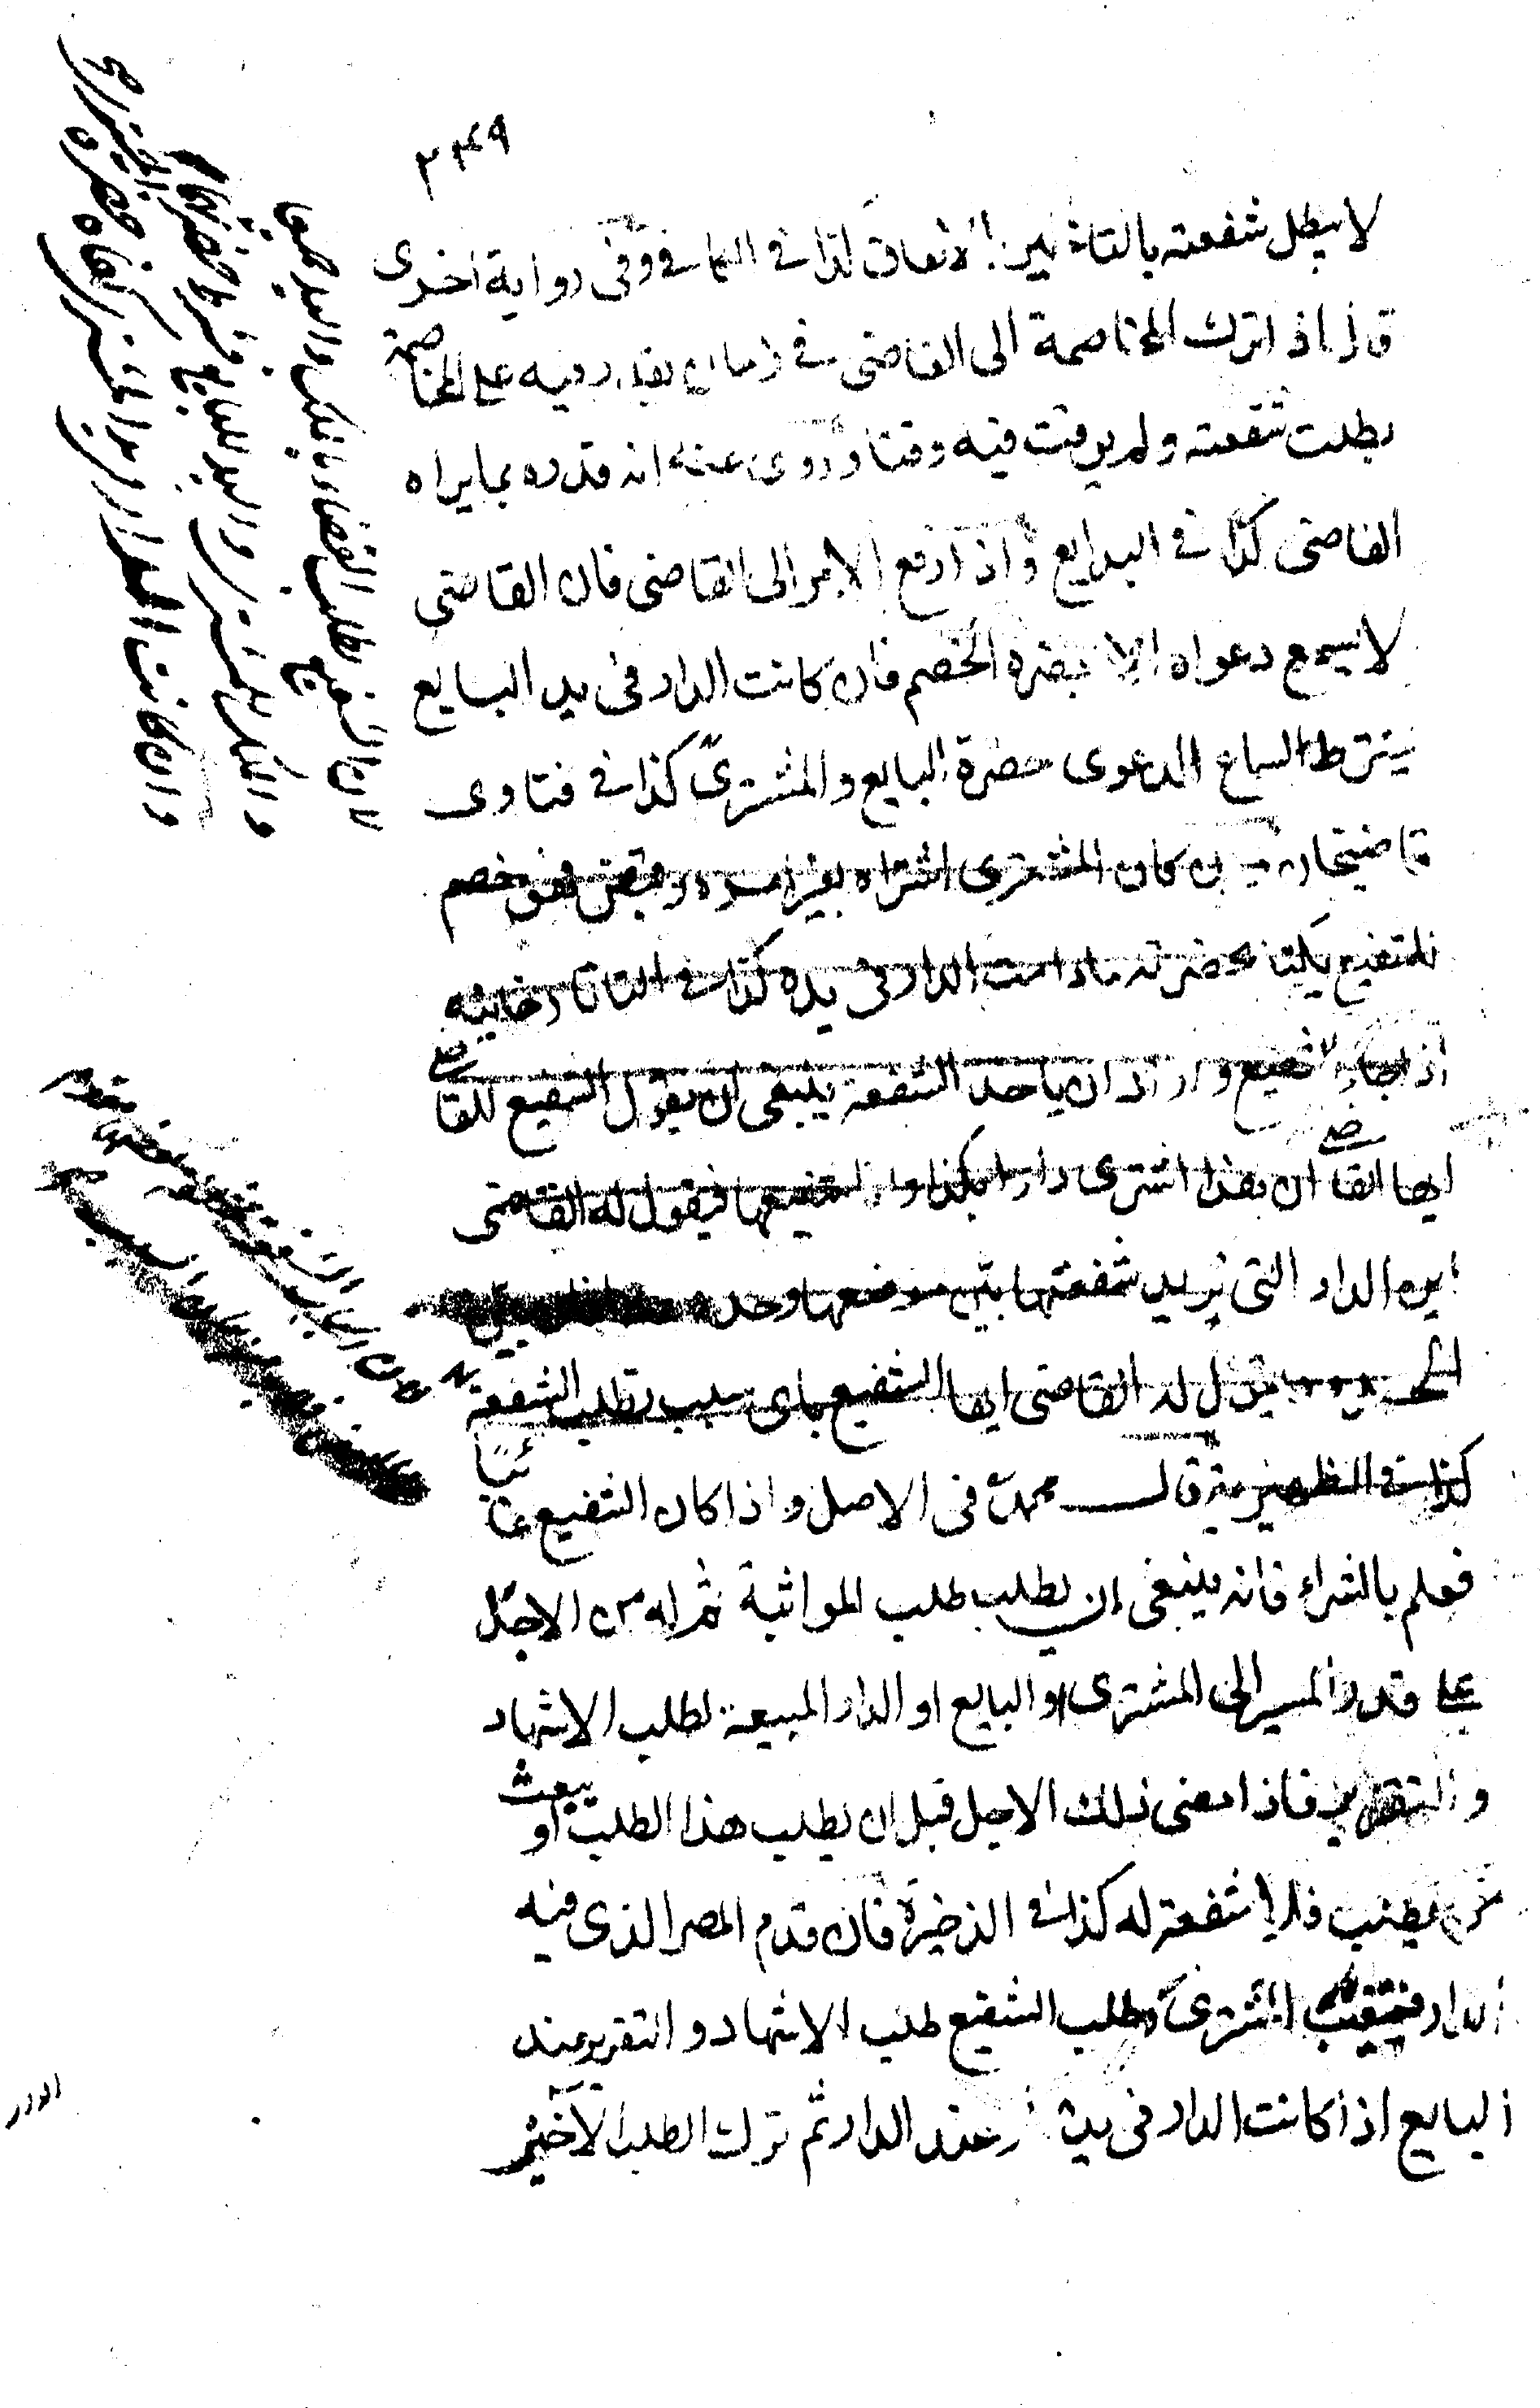 ٣٤٩
لا يبطل شفعته بالتاخير بالاتفاق كذا في الكافي وفي رواية اخرى
قال اذا ترك المخاصمة الى القاضى في زمان يقدر فيه على المخاصمة
بطلت شفعته ولم يوقت فيه وقتا وروى عنه انه قدره بما يراه
القاضى كذا في البدايع واذا رفع الامر الى القاضى فان القاضى
لا يسمع دعواه الا بحضرة الخصم فان كانت الدار فى يد البايع
يشترط السماع الدعوى حضرة البايع والمشترى كذا في فتاوى
قاضيخان كان المشترى اشتراه لغيره وقبض فهو خصم
للشفيع يكتفى بحضرته مادامت الدار فى يده كذا في التاتارخانيه
اذا جاء الشفيع واراد ان ياخذ الشفعة ينبغى ان يقول الشفيع للقاضى
ايها القاضى ان هذا اشترى دارا بكذا وانا شفيعها فيقول له القاضى
اين الدار التى تريد شفعتها بين موضعها وحدد
يقول له القاضى ايها الشفيع باى سبب تطلب الشفعة
كذا في الظهيرية قال محمد فى الاصل واذا كان الشفيع غائبا
فعلم بالشراء فانه ينبغى ان يطلب طلب المواثبة ثم له من الاجل
على قدر المسير الى المشترى او البايع او الدار المبيعة لطلب الاشهاد
والتقرير فاذا مضى ذلك الاجل قبل ان يطلب هذا الطلب او يبعث
من يطلب فلا شفعة له كذا في الذخيرة فان قدم المصر الذى فيه
الدار فتغيب المشترى وطلب الشفيع طلب الاشهاد والتقرير عند
البايع اذا كانت الدار فى يده او عند الدار ثم ترك الطلب الاخير
لان الشفيع يطلب القضاء بالملك واليد جميعا
والملك للمشترى واليد للبايع
وان كانت الدار